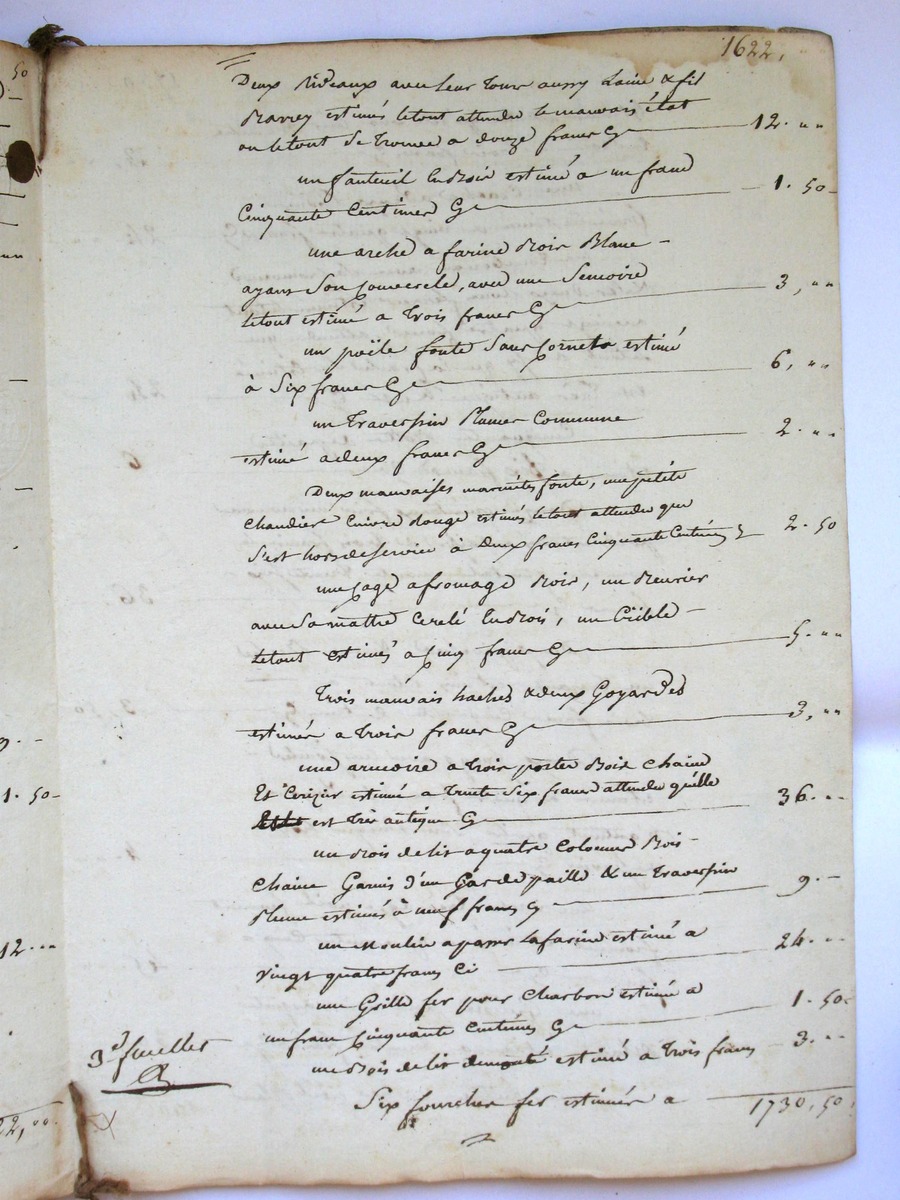 1622,
Deux Rideaux avec leur tour aussy Laine & fil
Barrez estimés letout attendu le mauvais état
ou letout Se trouve a douze francs Cy 12. ""
un fauteuil En Bois estimé a un franc
Cinquante Centimes Cy 1. 50
une arche a farine Bois Blanc
ayant Son Couvercle, avec une Semoire
letout estimé a trois francs Cy 3, ""
un poële fonte Sans Cornets estimé
à Six francs Cy 6, ""
un traverssin Plumes Commune
estimé a deux francs Cy 2. ""
Deux mauvaises marmites fonte, une petite
Chaudier Cuivre Rouge estimés letout attendu que
S'est hors de service à deux francs Cinquante Centimes Cy 2. 50
une Cage a fromage Bois, un Beurier
avec Sa mathe Cerclé En Bois, un Crible
letout estimés a Cinq francs Cy 5. ""
trois mauvais haches & deux Goyardes
estimés a trois francs Cy 3, ""
une armoire a trois portes Bois Chaine
Et Cerizier estimé a trente Six francs attendu qu'elle
est très antique Cy 36. ""
un Bois de lit a quatre Colonnes Bois
Chaine Garnis d'un Gar de paille & un traverssin
Plume estimés à neuf francs Cy 9. "
un Moulin a passer La farine estimé a
Vingt quatre francs Ci 24. ""
une Grille fer pour Charbon estimée a
un franc Cinquante Centimes Cy 1. 50
un Bois de lit demonté estimé a trois francs 3. ""
Six fourches fer estimées a
1730, 50
3e. feuillet
50
9. -
1. 50
12. ""
22, 00.